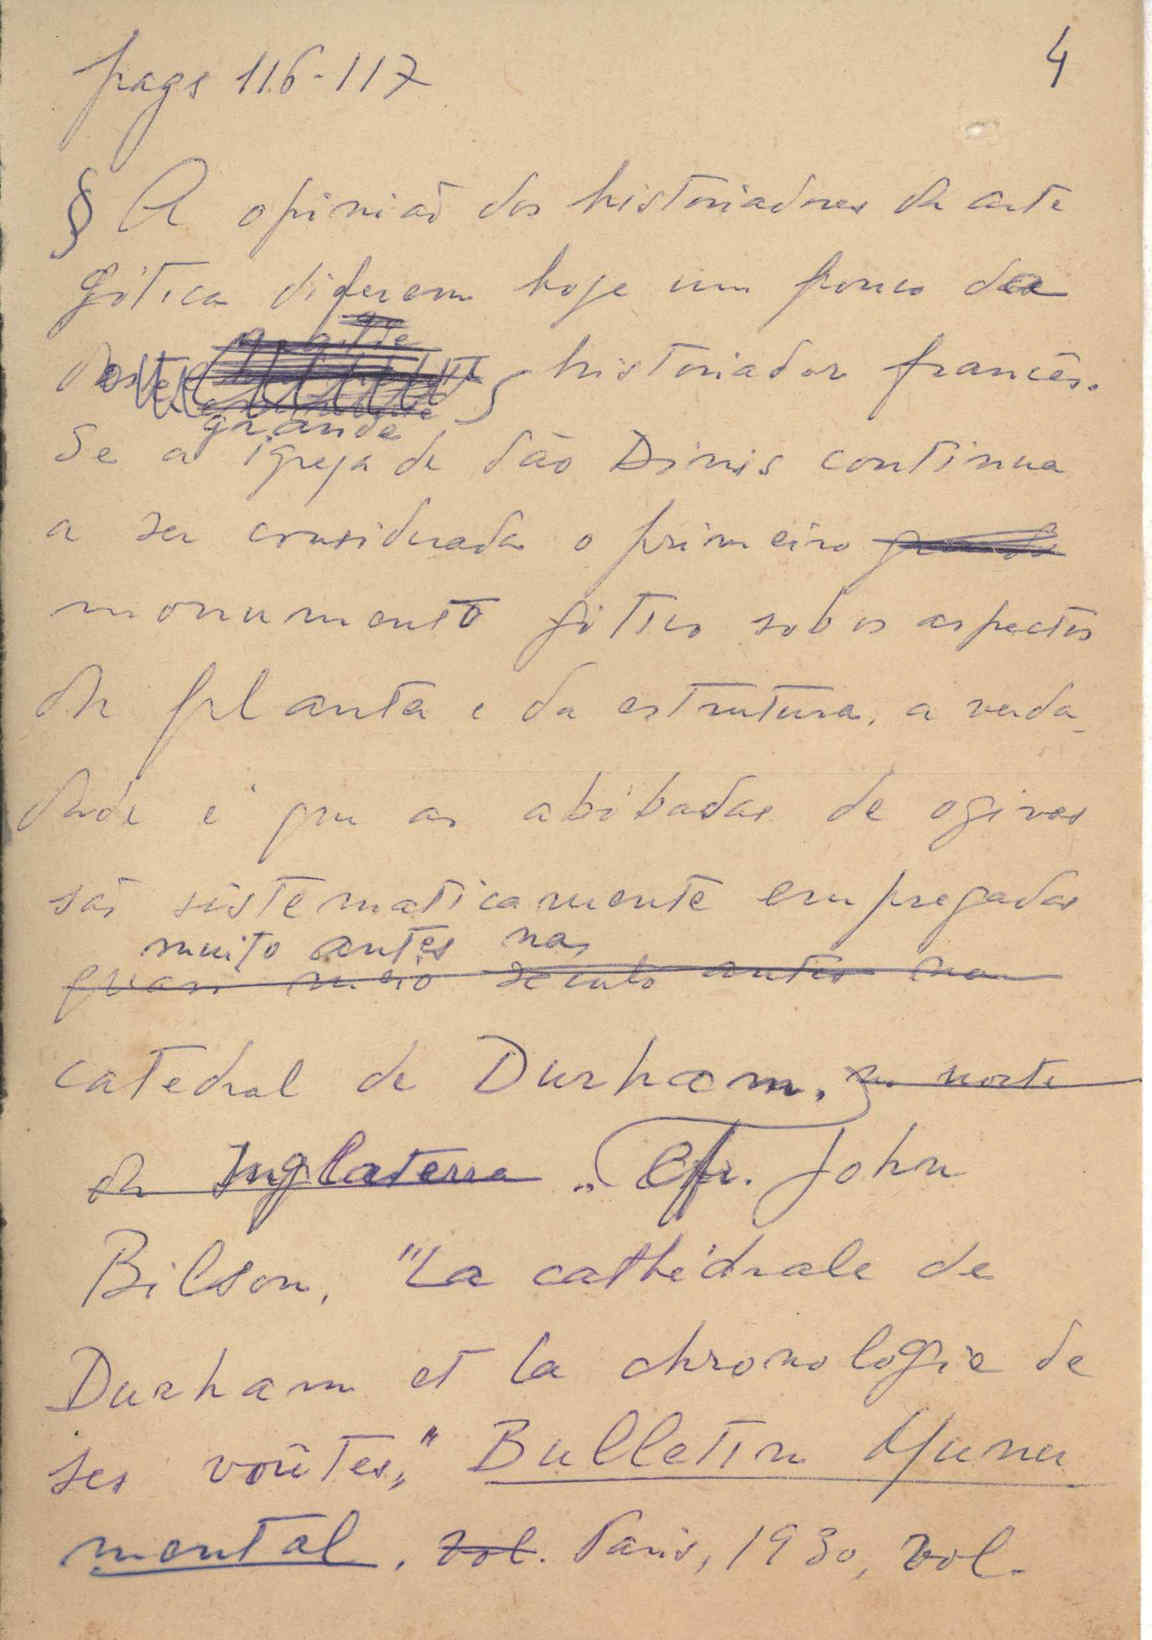 pags 116-117
4
§ A opinião dos historiadores da arte
gótica diferem hoje um pouco da
deste historiador francês.
grande
Se a igreja de São Dinis continua
a ser considerada o primeiro grande
monumento gótico sob os aspectos
da planta e da estrutura, a verda-
dade é que as abóbadas de ogivas
são sistematicamente empregadas
muito antes na,
quasi meio século antes na
catedral de Durham, no norte
da Inglaterra. Cfr. John
Bilson, "La cathédrale de
Durham et la chronologie de
ses voûtes," Bulletin Munu
mental, vol. Paris, 1930, vol.